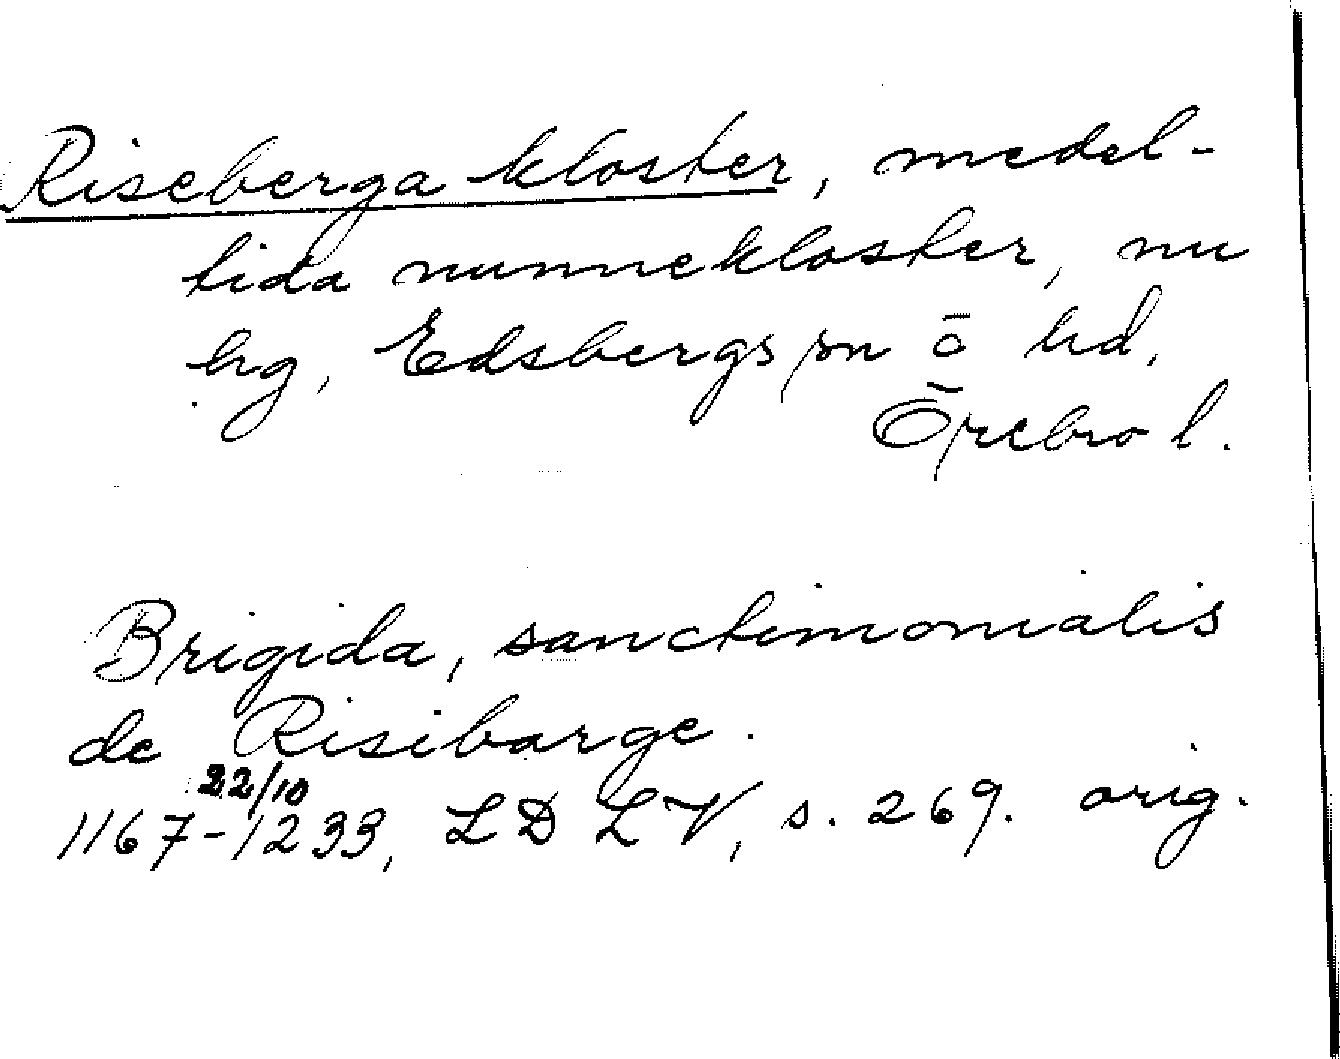 Riseberga kloster, medel-
tida nunnekloster, nu
hg, Edsbergs sn ō hd,
Örebro l.
Brigida, sanctimonialis
de Risibarge.
22/10
1167-1233, LD LV, s. 269. orig.